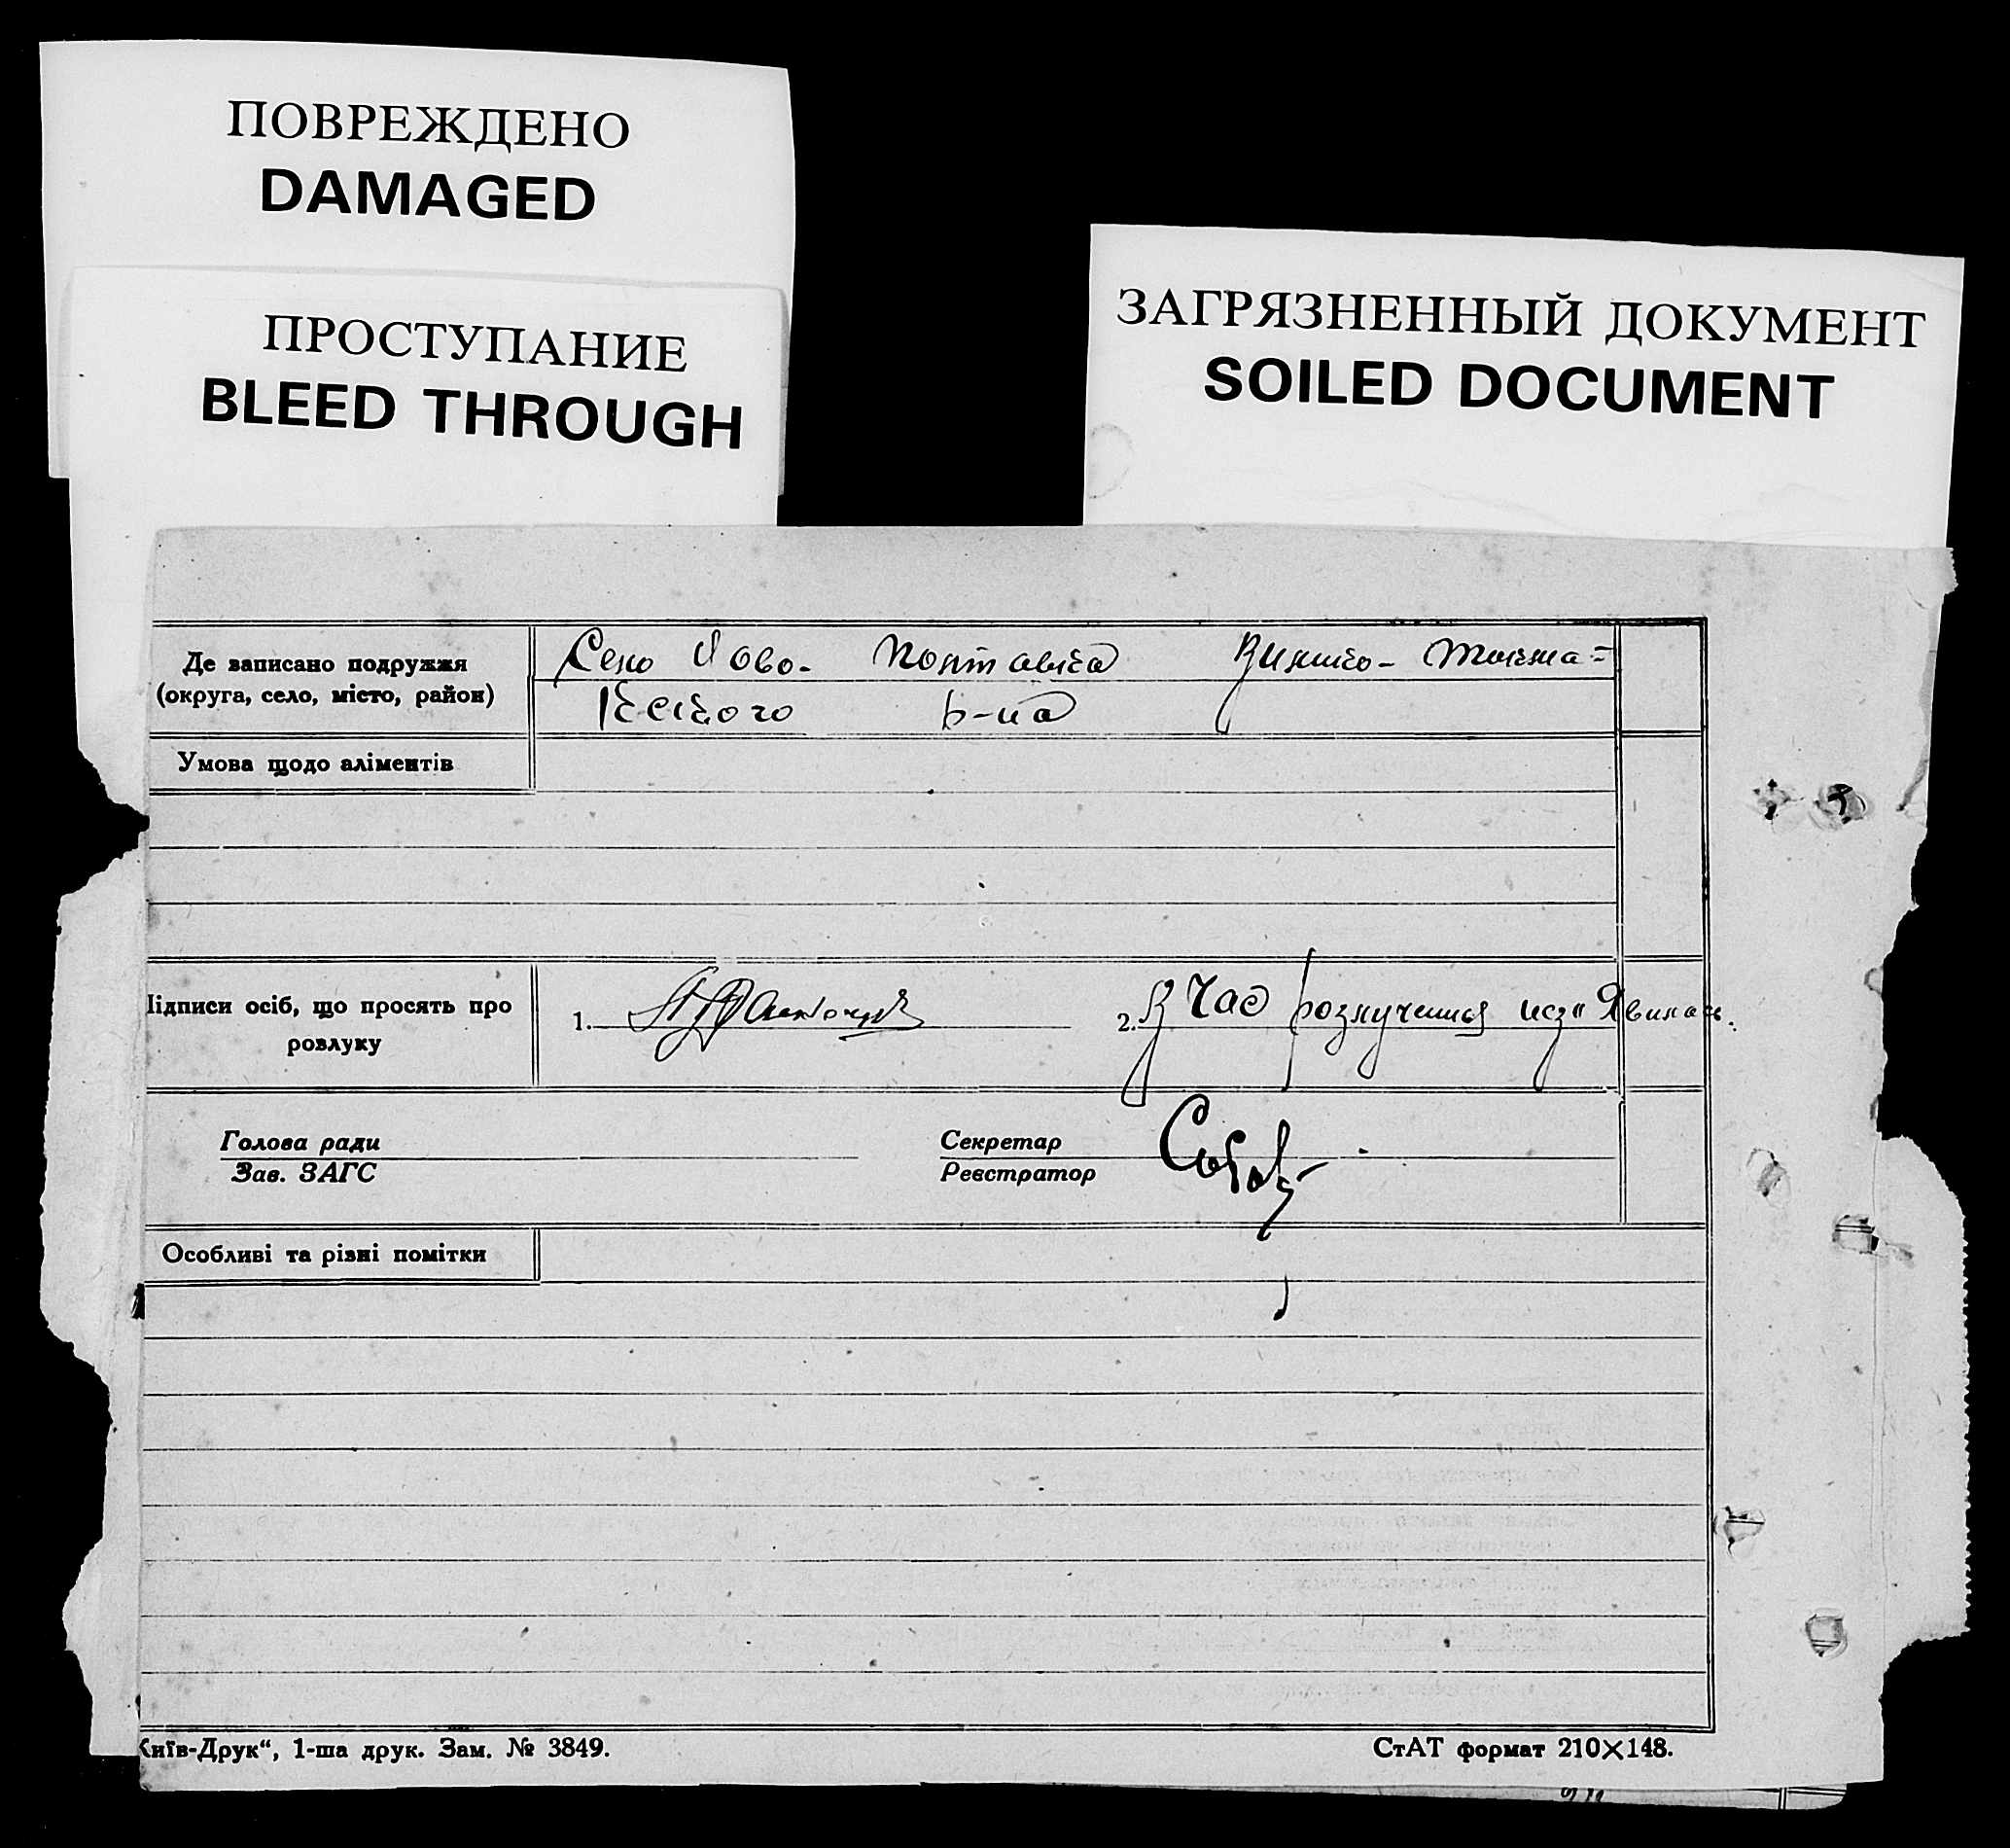 ПОВРЕЖДЕНО
DAMAGED
ПРОСТУПАНИЕ
BLEED THROUGH
ЗАГРЯЗНЕННЫЙ ДОКУМЕНТ
SOILED DOCUMENT
Де записано подружжя
(округа, село, місто, район)
Село Ново-Полтавка
р-на
Умова щодо аліментів
Підписи осіб, що просять про
розлуку
1.
2. В час розлучення не з'явилась.
Голова ради
Зав. ЗАГС
Секретар
Реєстратор
Особливі та різні помітки
Київ-Друк“, 1-ша друк. Зам. № 3849.
СтАТ формат 210×148.